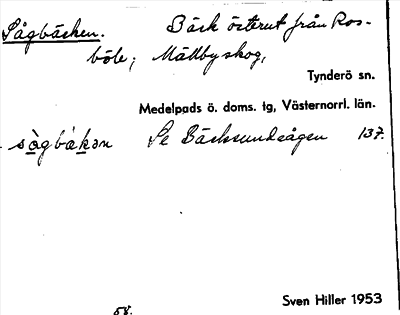 Sågbäcken. Bäck österut från Ros-
böle; Mällbyskog,
Tynderö sn.
Medelpads ö. doms. tg, Västernorrl. län.
sògbä́kən Se Bäcksundsågen 137.
58.
Sven Hiller 1953